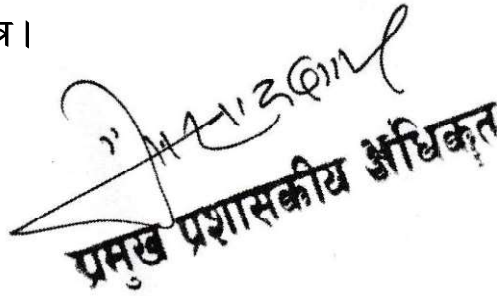 त्र।
प्रमुख प्रशासकीय अधिकृत